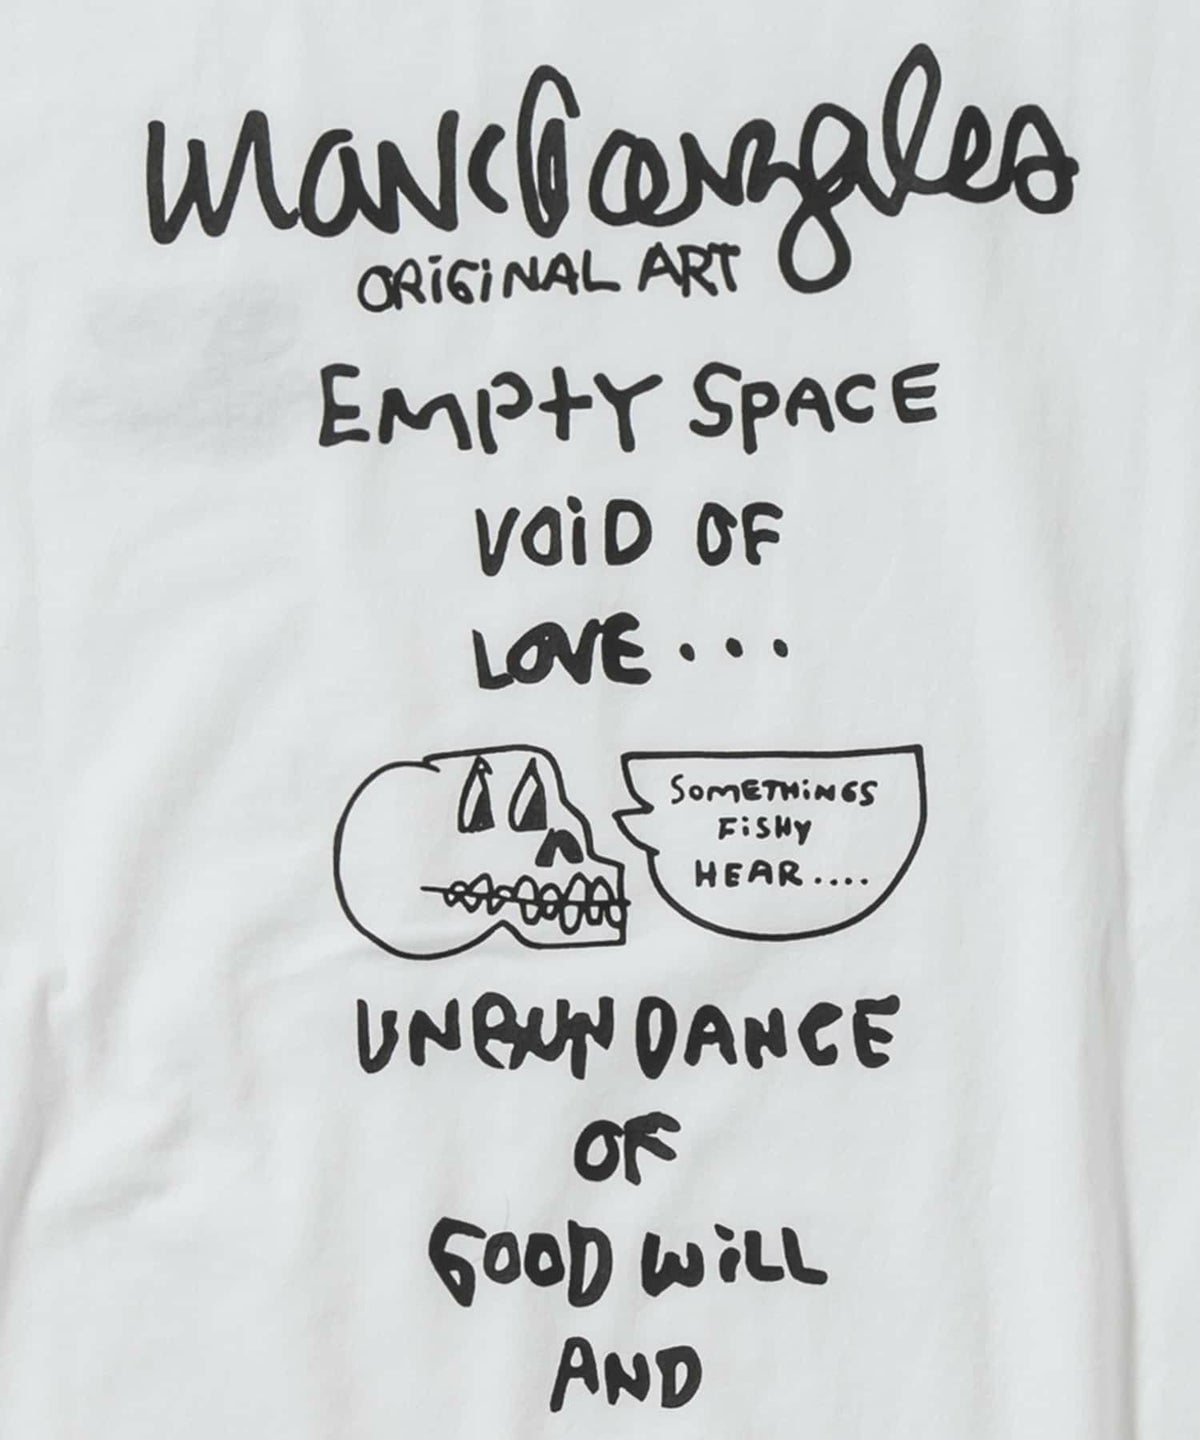 Mark Gonzales
ORiGiNAL ART
EMPTY SPACE
VOiD OF
LOVE...
SOMETHiNGS
FiSHY
HEAR....
UNBUNDANCE
OF
GOOD WiLL
AND